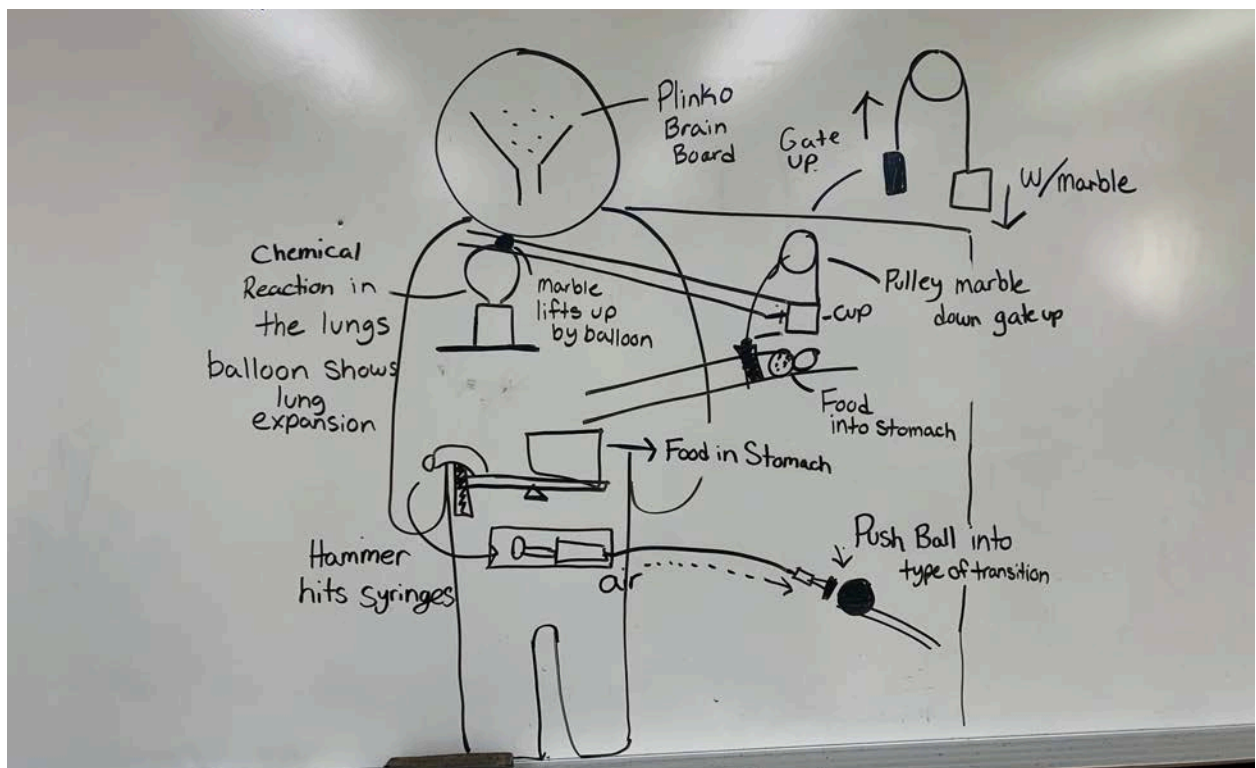 Plinko
Brain
Board
Gate
up
W/marble
Chemical
Reaction in
the lungs
balloon shows
lung
expansion
marble
lifts up
by balloon
-cup
Pulley marble
down gate up
Food
into stomach
Food in Stomach
Hammer
hits syringes
air
Push Ball into
type of transition